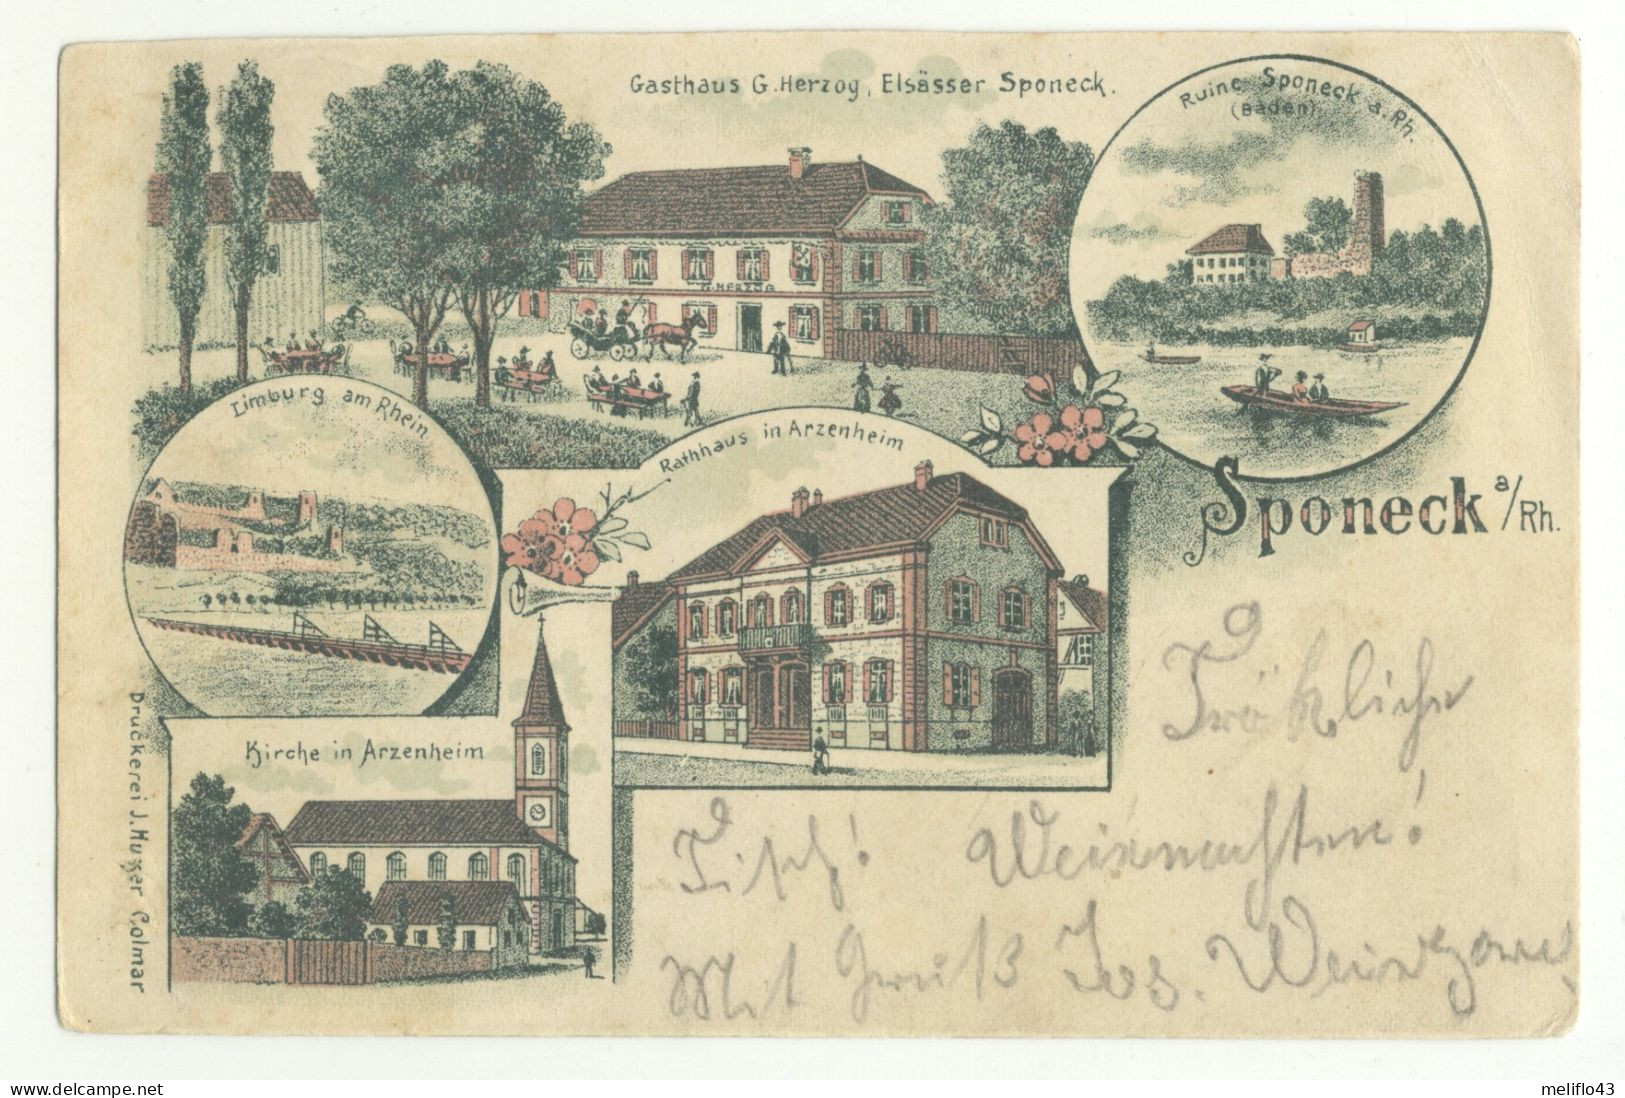 Gasthaus G. Herzog, Elsässer Sponeck.
Ruine Sponeck a. Rh.
(Baden)
G. HERZOG
Limburg am Rhein
Rathhaus in Arzenheim
Sponeck a/Rh.
Kirche in Arzenheim
Druckerei J. Hußer Colmar
Fröhliche
Weihnachten!
Mit Gruß Jos.
meliflo43